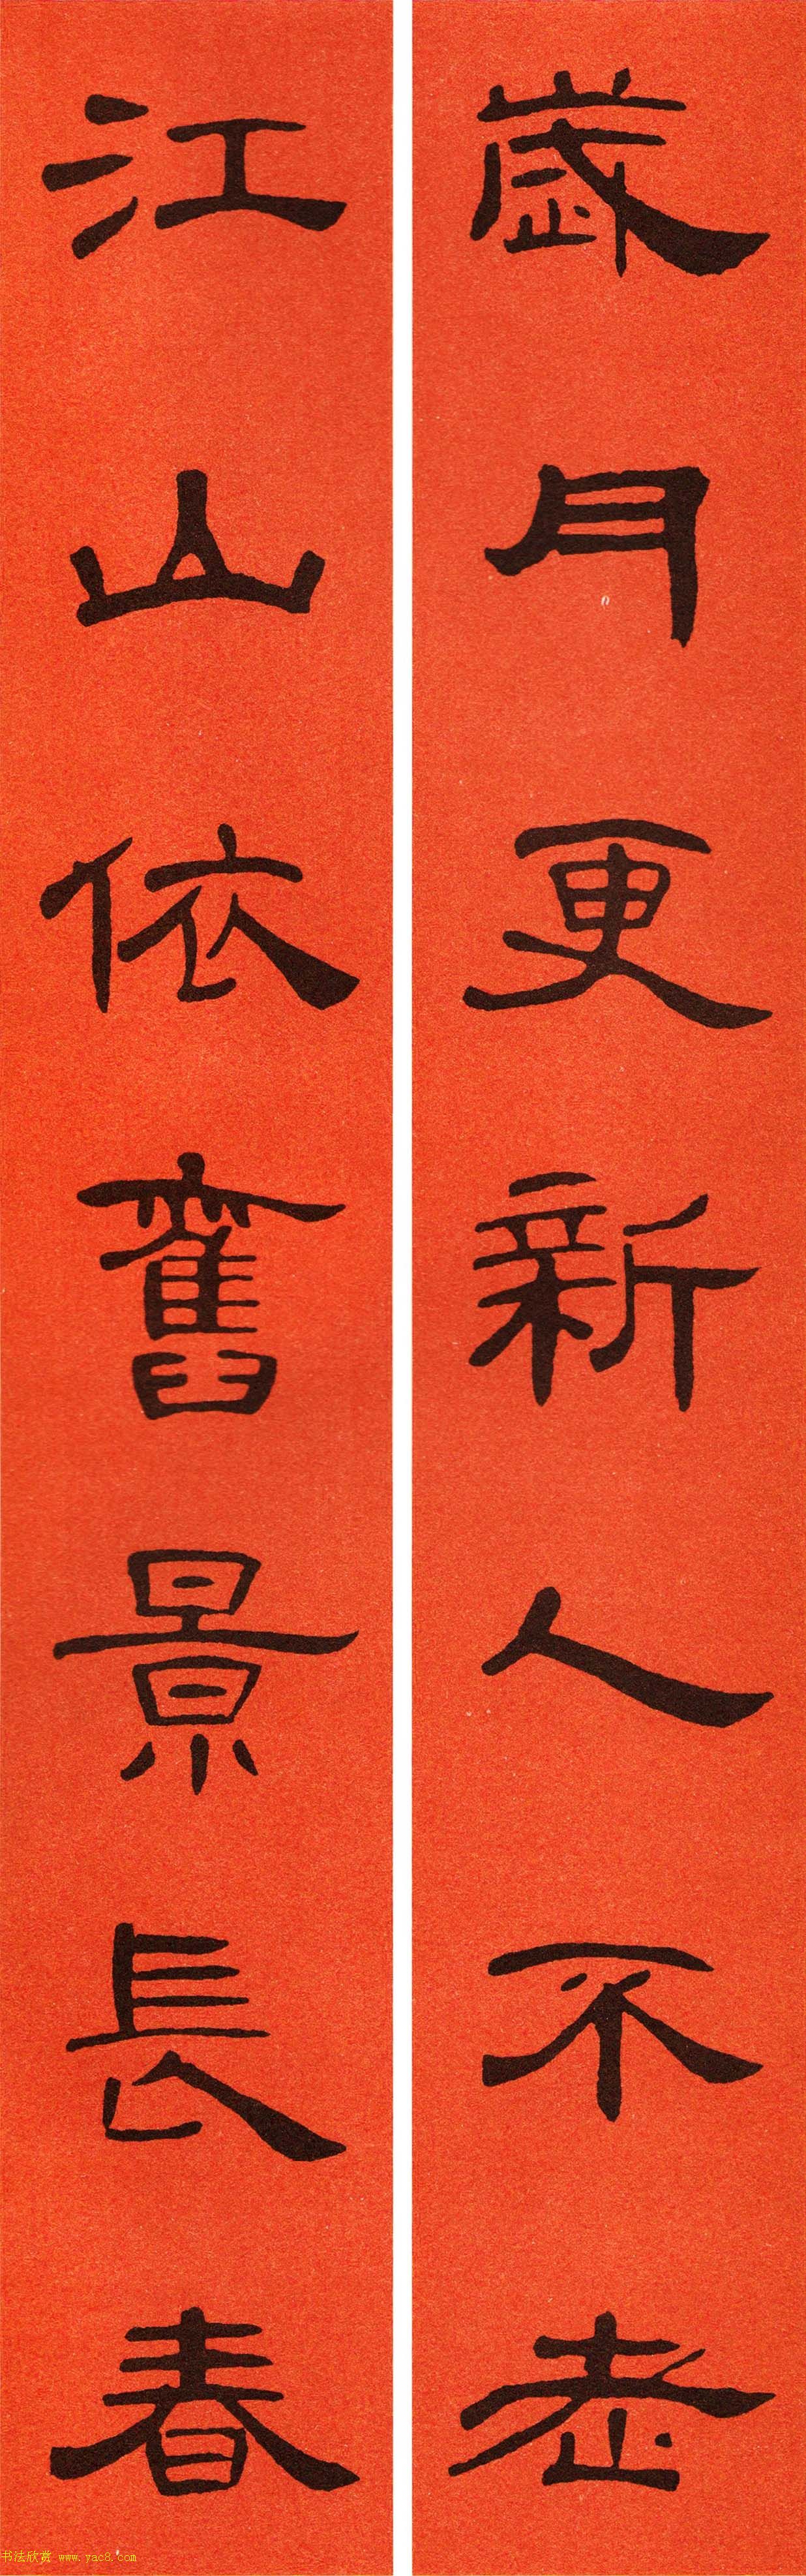 歲月更新人不老
江山依舊景長春
书法欣赏 www.yac8.com